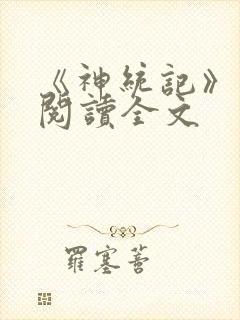 《神統記》
閱讀全文
羅塞蒂